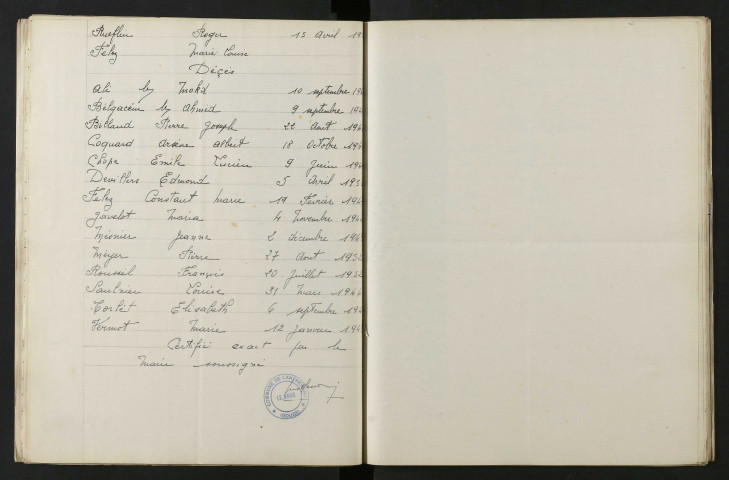 Roger 15 Avril 19
Félez Marie Louise
Décès
Ali ben Mohd 10 septembre 194
Belgacem ben Ahmed 9 septembre 194
Billaud Pierre Joseph 22 Aout 194
Coquard Arsène Albert 18 Octobre 194
Chope Emile Lucien 9 Juin 194
Devillers Edmond 5 Avril 19
Félez Constant Marie 19 Février 194
Javelot Maria 4 Novembre 194
Mionier Jeanne 2 décembre 194
Meyer Pierre 27 Aout 19
Roussel François 20 Juillet 19
Saulnier Louise 31 Mars 194
Elisabeth 6 septembre 194
Vermot Marie 12 janvier 194
Certifié exact par le
Maire soussigné
COMMUNE DE